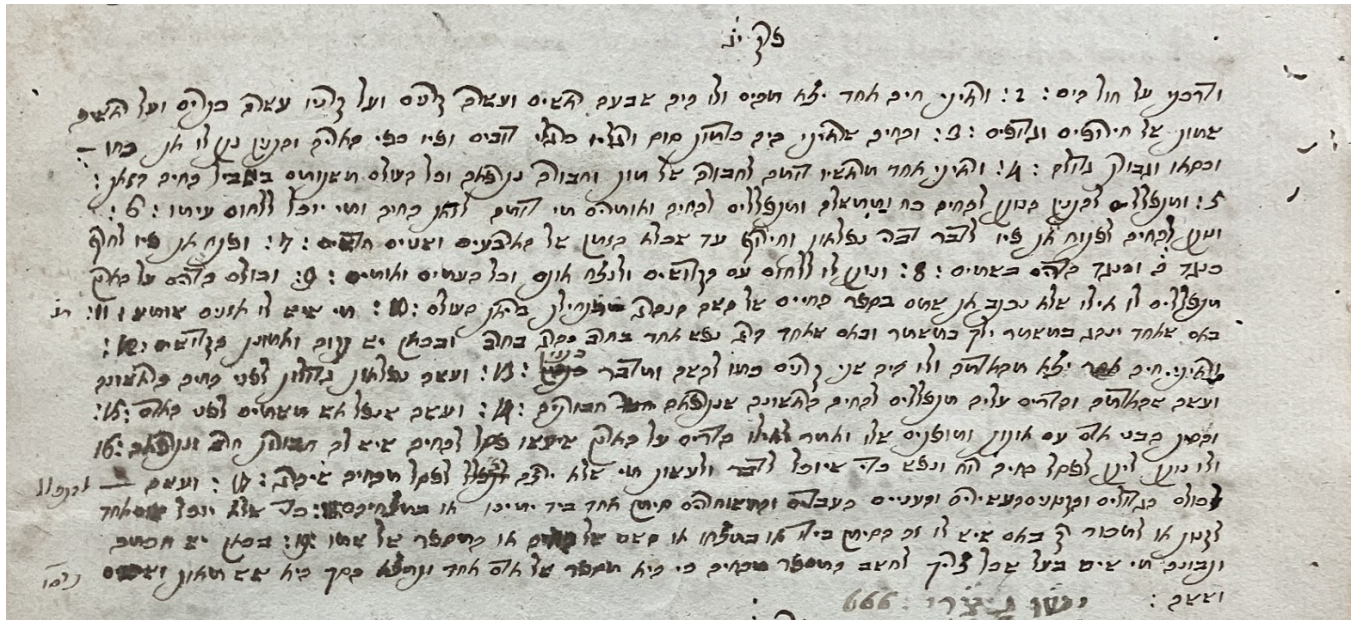 פרק יג
ודרכתי על חול הים : 2: וראיתי חיה אחד יצא מהים ולו היה שבעה ראשים ועשרה קרנים ועל קרניו עשרה כתרים ועל ראשיה
שמות של חירופים וגדופים : 3: והחיה שראיתי היה כדמות ורגליו כרגלי דובים ופיו כפי האריה והתנין נתן לו את כחו
וכסאו וגבורה גדולה : 4: וראיתי אחד מראשיו קרוב לחבורה של מות וחבורה נתרפאה וכל העולם בשביל החיה הזאת :
5: ומתפללים לתנין הנותן להחיה כח וממשלה ומתפללים להחיה ואומרים מי לזאת החיה ומי יוכל ללחום עימו : 6:
ונתן להחיה לפתוח את פיו לדבר רבה נפלאות וחירוף עד שכלה הזמן של ארבעים ושנים חדשים : 7: ופתח את פיו לחרף
כנגד ה' וכנגד הדרים בשמים : 8: ונתן לו ללחום עם הקדושים ולנצח אותם וכל העמים ואומות : 9: וכולם הדרים על הארץ
מתפללים לו אילו שלא נכתב את שמם בספר החיים של השה מתחילת בריאת העולם : 10: מי שיש לו אזנים שומע : 11:
באם שאחד ינהג במשמר ילך במשמר ובאם שאחד הרג נפש אחד בחרב נהרג בחרב ובכאן יש תקוה ואמונת הקדושים : 12:
וראיתי חיה אחר יצא מהארץ ולו היה שני קרנים כמו להשה ומדבר כתנין : 13: ועשה נפלאות גדולות לפני החיה הראשונה
ועשה שהארץ והדרים עליה מתפללים להחיה הראשונה שנתרפאה חבורתה : 14: ועשה שנפל אש משמים לפני האדם : 15:
והסית בבני אדם עם אותות ומופתים שלו ואמר לאילו הדרים על הארץ שיעשו פסל להחיה שיש לה חבורת חרב ונתרפאה : 16
ולו נותן ליתן לפסל החיה רוח ונפש כדי שיוכל לדבר ולעשות מי שלא לפסל מהחיה שיהרג : 17: ועשה
לכולם הגדולים והקטנים העשירים והעניים העבדים סימן אחד ביד ימינו או במצחיהם : כדי שלא יוכל שום אחד
לקנות או למכור רק באם שיש לו זה הסימן בידו או במצחו או השם של החיה או המספר של שמו : 19: בכאן יש חכמה
ונבונה מי שיש בעל שכל צריך לחשב המספר מהחיה כי היא מספר של אדם אחד ונמצא בסך היא שש מאות וששים
וששה : ישו נוצרי : 666